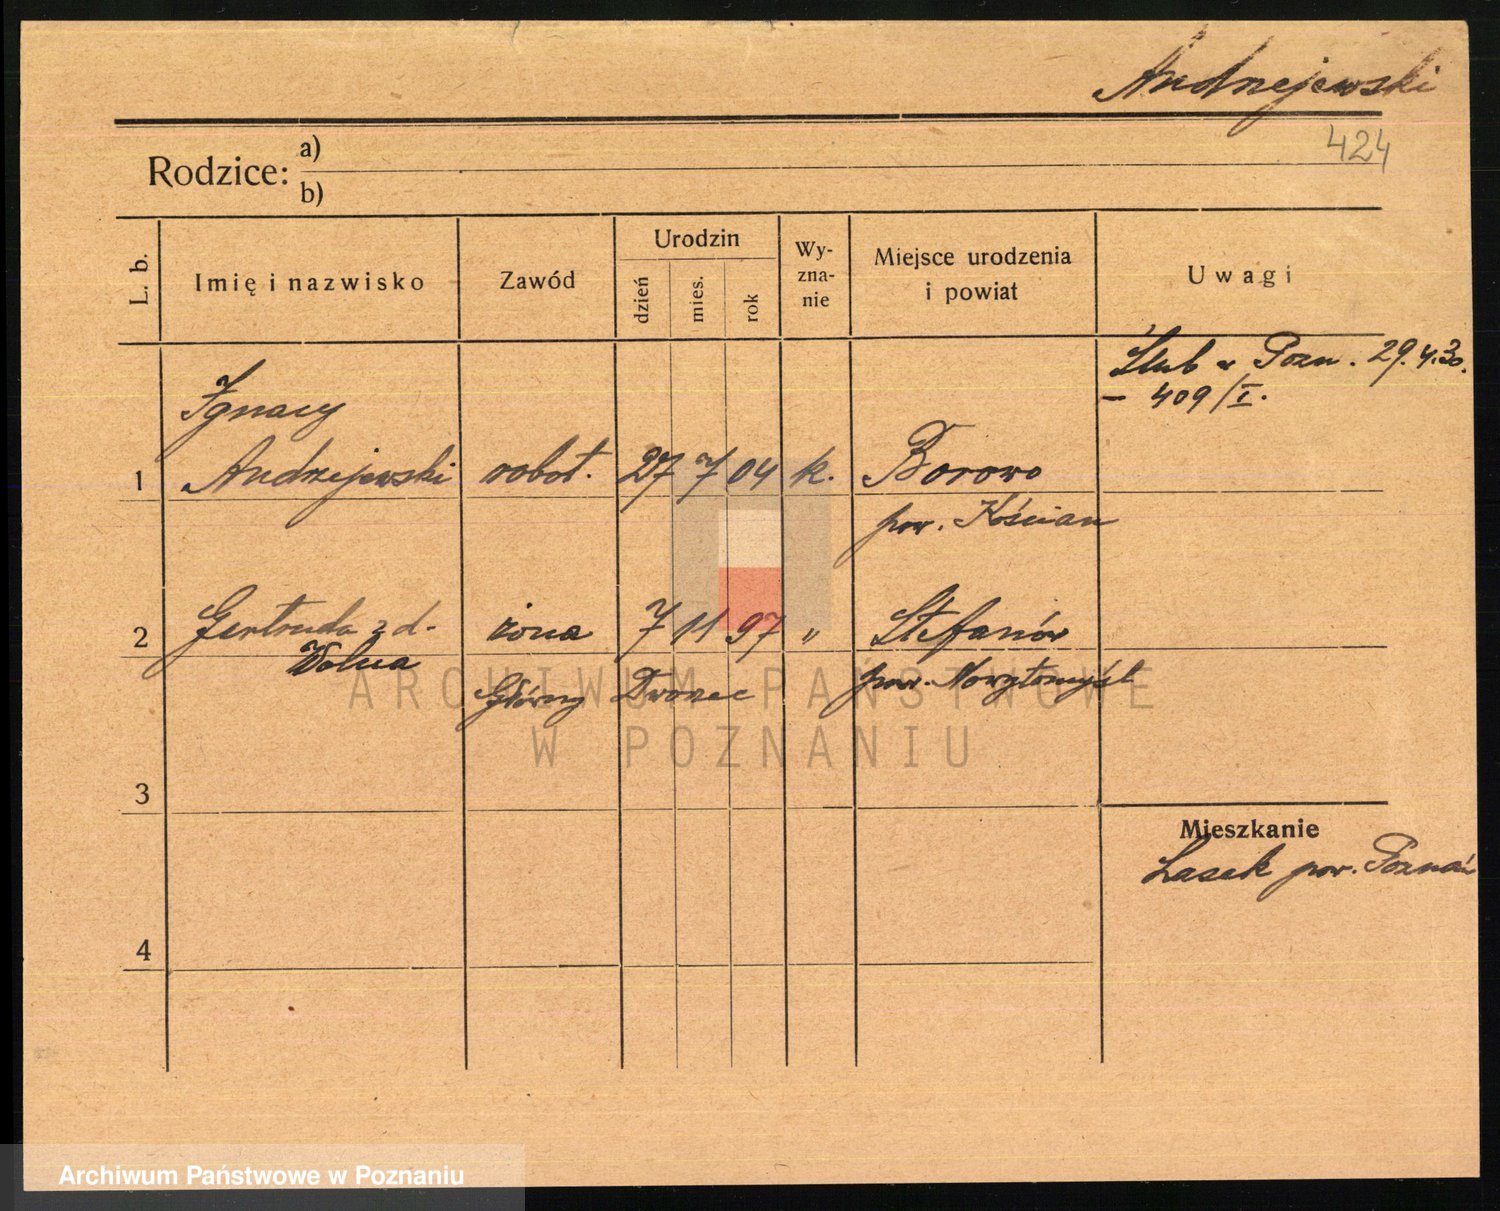 Andrzejewski
424
Rodzice: a)
b)
L. b.
Imię i nazwisko
Zawód
Urodzin
dzień
mies.
rok
Wy-
zna-
nie
Miejsce urodzenia
i powiat
Uwagi
Ślub w Pozn. 29.4.30.
– 409/I.
Ignacy
1 Andrzejewski robot. 27 7 04 k. Borowo
pow. Kościan
2 Gertruda z d. żona 7 11 97 " Stefanów
Wolna
Główny Dworzec pow. Nowytomyśl
ARCHIWUM PAŃSTWOWE
W POZNANIU
3
Mieszkanie
Lasek pow. Poznań
4
Archiwum Państwowe w Poznaniu